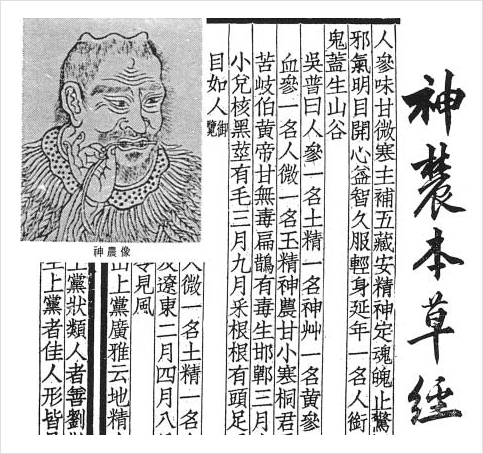 神農本草經
人參味甘微寒主補五藏安精神定魂魄止驚
邪氣明目開心益智久服輕身延年一名人銜
鬼蓋生山谷
吳普曰人參一名土精一名神艸一名黃參
血參一名人微一名王精神農甘小寒桐君
苦岐伯黃帝甘無毒扁鵲有毒生邯鄲三月
小兌核黑莖有毛三月九月采根根有頭足
目如人御覽
神農像
人微一名土精一名
遼東二月四月八
見風
上黨廣雅云地精
上黨狀類人者善劉
上黨者佳人形皆